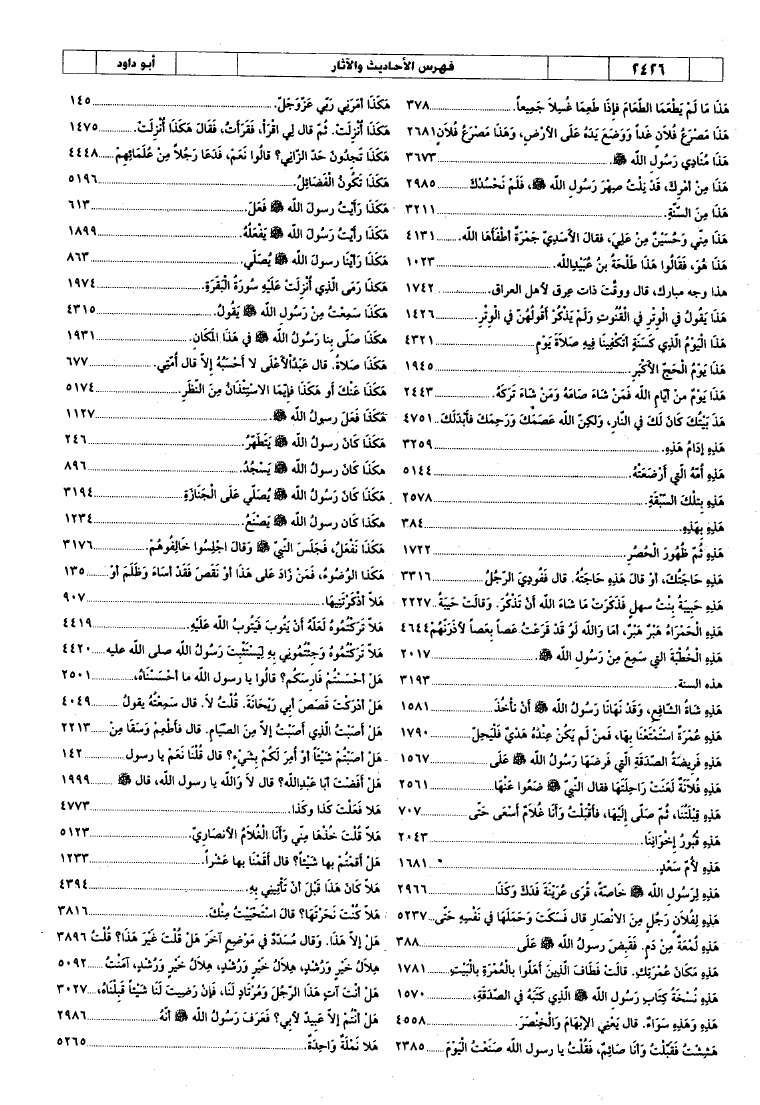 ٢٤٢٦ فهرس الأحاديث والآثار أبو داود
هَذَا مَا لَمْ يَطْعَمَا الطَّعَامَ فَإِذَا طَعِمَا غُسِلاَ جَمِيعاً. ٣٧٨
هَذَا مَصْرَعُ فُلاَنٍ غَداً وَوَضَعَ يَدَهُ عَلَى الأَرْضِ، وَهَذَا مَصْرَعُ فُلاَنٍ ٢٦٨١
هَذَا مُنَادِي رَسُولِ الله ﷺ. ٣٦٧٣
هَذَا مِنْ أَمْرِكَ، قَدْ نِلْتُ صِهْرَ رَسُولِ الله ﷺ، فَلَمْ نَحْسُدْكَ ٢٩٨٥
هَذَا مِنَ السُّنَّةِ. ٣٢١١
هَذَا مِنِّي وَحُسَيْنٌ مِنْ عَلِيَ، فقَالَ الأَسَدِيّ جَمْرَةٌ أَطْفَأَهَا الله. ٤١٣١
هَذَا هُوَ، فَقَالُوا هَذَا طَلْحَةُ بنُ عُبَيْدِالله. ١٠٢٣
هذا وجه مبارك، قال ووقّتَ ذات عِرق لأهل العراق. ١٧٤٢
هَذَا يَقُولُ في الْوِتْرِ في الْقُنُوتِ وَلَمْ يَذْكُرْ أَقُولُهُنّ في الْوِتْرِ. ١٤٢٦
هَذَا الْيَوْمُ الَّذِي كَسَنَةٍ أَتَكْفِينَا فِيهِ صَلاَةُ يَوْمٍ ٤٣٢١
هَذَا يَوْمُ الْحَجِّ الأَكْبَرِ. ١٩٤٥
هَذَا يَوْمٌ منْ أَيّامِ الله فَمَنْ شَاءَ صَامَهُ وَمَنْ شَاءَ تَرَكَهُ. ٢٤٤٣
هَذَ بَيْتُكَ كَانَ لَكَ في النَّارِ، وَلَكِنّ الله عَصَمَكَ وَرَحِمَكَ فَأَبْدَلَكَ ٤٧٥١
هَذِهِ إِدَامُ هَذِهِ. ٣٢٥٩
هَذِهِ أُمُّهُ الَّتِي أَرْضَعَتْهُ. ٥١٤٤
هَذِهِ بِتِلْكَ السَّبْقَةِ. ٢٥٧٨
هَذِهِ بِهَذِهِ. ٣٨٤
هَذِهِ ثُمّ ظُهُورَ الْحُصُرِ. ١٧٢٢
هَذِهِ حَاجَتُكَ، أَوْ قالَ هَذِهِ حَاجَتُهُ. قال فَفُودِيَ الرّجُلُ ٣٣١٦
هَذِهِ حَبِيبَةُ بِنْتُ سهلٍ فَذَكَرَتْ مَا شَاءَ الله أنْ تَذْكُرَ. وَقَالَتْ حَبِيبَةُ ٢٢٢٧
هَذِهِ الْحَمْرَاءُ هَبْرٌ هَبْرٌ، أمَا وَالله لَوْ قَدْ قَرَعْتُ عَصاً بِعَصاً لأذَرَنَّهُمْ ٤٦٤٤
هَذِهِ الْخُطْبَةَ التي سَمِعَ مِنْ رَسُولِ الله ﷺ. ٢٠١٧
هذه السنة. ٣١٩٣
هَذِهِ شَاةُ الشَّافِعِ، وَقَدْ نَهَانَا رَسُولُ الله ﷺ أَنْ نَأْخُذَ ١٥٨١
هَذِهِ عُمْرَةٌ اسْتَمْتَعْنَا بِهَا، فمَنْ لَمْ يَكُنْ عِنْدَهُ هَدْيٌ فَلْيَحِلّ ١٧٩٠
هَذِهِ فَرِيضَةُ الصّدَقَةِ الّتِي فَرَضَهَا رَسُولُ الله ﷺ عَلَى ١٥٦٧
هَذِهِ فُلاَنَةُ لَعَنَتْ رَاحِلَتَهَا فقال النّبيّ ﷺ ضَعُوا عَنْهَا ٢٥٦١
هَذِهِ قِبْلَتُنَا، ثُمّ صَلّى إلَيْهَا، فأَقْبَلْتُ وَأَنَا غُلاَمٌ أَسْعَى حَتّى ٧٠٧
هَذِهِ قُبُورُ إِخْوَانِنَا. ٢٠٤٣
هَذِهِ لأُمّ سَعْدٍ. ١٦٨١
هَذِهِ لِرَسُولِ الله ﷺ خَاصّةً، قُرَى عُرَيْنَةَ فَدَكَ وَكَذَا ٢٩٦٦
هَذِهِ لِفُلاَنٍ رَجُلٍ مِنَ الأَنْصَارِ قال فَسَكَتَ وَحَمَلَهَا في نَفْسِهِ حَتّى ٥٢٣٧
هَذِهِ لُمْعَةٌ مِنْ دَمٍ. فَقَبَضَ رسولُ الله ﷺ عَلَى ٣٨٨
هَذِهِ مَكَانُ عُمْرَتِكِ. قالَتْ فَطَافَ الّذِينَ أَهَلّوا بالْعُمْرَةِ بِالْبَيْتِ ١٧٨١
هَذِهِ نُسْخَةُ كِتَابِ رَسُولِ الله ﷺ الَّذِي كَتَبَهُ في الصّدَقَةِ، ١٥٧٠
هَذِهِ وَهَذِهِ سَوَاءٌ. قال يَعْنِي الإِبْهَامَ وَالْخِنْصَرَ. ٤٥٥٨
هَشِشْتُ فَقَبّلْتُ وَأَنَا صَائِمٌ، فَقُلْتُ يا رسول الله صَنَعْتُ الْيَوْمَ ٢٣٨٥
هَكَذَا أَمَرَنِي رَبّي عَزّوَجَلّ. ١٤٥
هَكَذَا أُنْزِلَتْ. ثُمّ قال لِي اقْرَأْ، فَقَرَأْتُ، فَقَالَ هَكَذَا أُنْزِلَتْ. ١٤٧٥
هَكَذَا تَجِدُونَ حَدّ الزّانِي؟ قالُوا نَعَمْ، فَدَعَا رَجُلاً مِنْ عُلَمَائِهِمْ ٤٤٤٨
هَكَذَا تَكُونُ الْفَضَائِلُ. ٥١٩٦
هَكَذَا رَأَيْتُ رسولَ الله ﷺ فَعَلَ. ٦١٣
هَكَذَا رأَيْتُ رَسُولَ الله ﷺ يَفْعَلُهُ. ١٨٩٩
هَكَذَا رَأَيْنَا رسولَ الله ﷺ يُصَلّي. ٨٦٣
هَكَذَا رَمَى الَّذِي أُنْزِلَتْ عَلَيْهِ سُورَةُ الْبَقَرَةِ. ١٩٧٤
هَكَذَا سَمِعْتُ مِنْ رَسُولِ الله ﷺ يَقُولُ. ٤٣١٥
هكَذَا صَلّى بِنا رَسُولُ الله ﷺ في هَذَا المَكَانِ. ١٩٣١
هَكَذَا صَلاَةُ. قال عَبْدُالأَعْلَى لا أَحْسَبُهُ إلاّ قال أُمّتِي. ٦٧٧
هَكَذَا عَنْكَ أَو هَكَذَا فإِنّمَا الاسْتِئْذَانُ مِنَ النّظَرِ. ٥١٧٤
هَكَذَا فَعَلَ رسولُ الله ﷺ. ١١٢٧
هَكَذَا كَانَ رَسُولُ الله ﷺ يَتَطَهّرُ. ٢٤٦
هكَذَا كَانَ رسولُ الله ﷺ يَسْجُدُ. ٨٩٦
هَكَذَا كَانَ رَسُولُ الله ﷺ يُصَلّي عَلَى الْجَنَازَةِ ٣١٩٤
هكذا كان رسولُ الله ﷺ يَصْنَعُ. ١٢٣٤
هَكَذَا نَفْعَلُ، فَجَلَسَ النّبيّ ﷺ وَقالَ اجْلِسُوا خَالِفُوهُمْ. ٣١٧٦
هَكَذا الوُضُوءُ، فَمَنْ زَادَ عَلى هَذا أوْ نَقَصَ فَقَدْ أسَاءَ وَظَلَمَ أوْ ١٣٥
هَلاّ أذْكَرْتَنِيهَا. ٩٠٧
هَلاّ تَرَكْتُمُوهُ لَعَلّهُ أنْ يَتُوبَ فَيَتُوبُ الله عَلَيْهِ. ٤٤١٩
هَلاّ تَرَكْتُمُوهُ وَجِئْتُمُونِي بِهِ لِيَسْتَثْبِتَ رَسُولُ الله صلى الله عليه ٤٤٢٠
هَلْ أَحْسَسْتُمْ فَارِسَكُم؟ قالُوا يا رسول الله ما أَحْسَسْنَاهُ، ٢٥٠١
هَلْ أَدْرَكْتَ قَصَصَ أبي رَيْحَانَةَ. قُلْتُ لاَ. قال سَمِعْتُهُ يقولُ ٤٠٤٩
هَلْ أَصَبْتُ الّذِي أَصَبْتُ إلاّ مِنَ الصّيَامِ. قال فأَطْعِمْ وَسْقاً مِنْ ٢٢١٣
هَلْ أصَبْتُمْ شَيْئاً أوْ أُمِرَ لَكُمْ بِشَيْءٍ؟ قال قُلْنَا نَعَمْ يا رسول ١٤٢
هَلْ أَفَضْتَ أبَا عَبْدِالله؟ قال لاَ وَالله يا رسول الله، قال ﷺ ١٩٩٩
هَلا فَعَلْتَ كَذا وكَذا. ٤٧٧٣
هَلاّ قُلْتَ خُذْهَا مِنّي وَأَنَا الْغُلاَمُ الأَنْصَارِيّ. ٥١٢٣
هَلْ أَقَمْتُمْ بِها شَيْئاً؟ قال أَقَمْنَا بها عَشْراً. ١٢٣٣
هَلاّ كَانَ هَذَا قَبْلَ أَنْ تَأْتِيَنِي بِهِ. ٤٣٩٤
هَلاّ كُنْتَ نَحَرْتَهَا؟ قالَ اسْتَحْيَيْتُ مِنْكَ. ٣٨١٦
هَلْ إلاّ هَذَا. وَقال مُسَدّدٌ في مَوْضِعٍ آخَرَ هَلْ قُلْتَ غَيْرَ هَذَا؟ قُلْتُ ٣٨٩٦
هِلاَلُ خَيْرٍ وَرُشْدٍ، هِلاَلُ خَيْرٍ وَرُشْدٍ، هِلاَلُ خَيْرٍ وَرُشْدٍ، آمَنْتُ ٥٠٩٢
هَلْ أَنْتَ آتٍ هَذَا الرّجُلَ وَمُرْتَادٍ لَنَا، فَإِنْ رَضِيتَ لَنَا شَيْئاً قَبِلْنَاهُ، ٣٠٢٧
هَلْ أَنْتُمْ إلاّ عَبِيدٌ لأَبِي؟ فَعَرَفَ رَسُولُ الله ﷺ أَنّهُ ٢٩٨٦
هَلاّ نَمْلَةً وَاحِدَةً. ٥٢٦٥